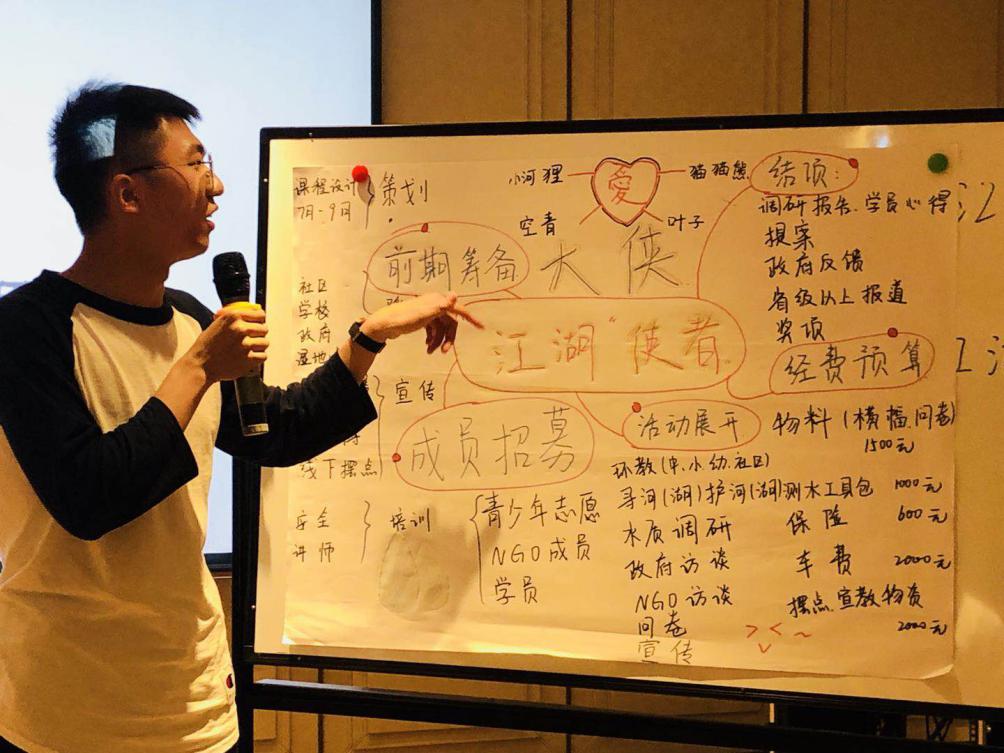 课程设计
7月-9月
策划
小河狸
爱
猫猫熊
空青
叶子
大侠
前期筹备
社区
学校
政府
湿地
"江湖"使者
宣传
线下摆点
成员招募
安全
讲师
培训
青少年志愿
NGO成员
学员
结项:
调研报告、学员心得
提案
政府反馈
省级以上报道
奖项
经费预算
物料(横幅、问卷)
1500元
测水工具包 1000元
保险 600元
车费 2000元
摆点、宣教物资
2000元
活动展开
环教(中、小、幼、社区)
寻河(湖)护河(湖)
水质调研
政府访谈
NGO访谈
问卷
宣传